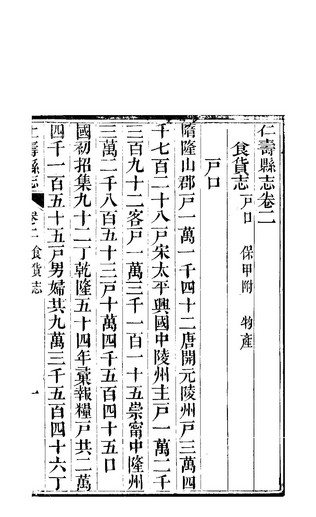 仁壽縣志卷二
食貨志 戸口 保甲附 物產
戸口
隋隆山郡戸一萬一千四十二唐開元陵州戸三萬四
千七百二十八戸宋太平興國中陵州主戸一萬二千
三百九十二客戸一萬三千一百一十五崇甯中隆州
三萬二千八百五十三戸十萬四千五百四十五口
國初招集九十二丁乾隆五十四年彙報糧戸共二萬
四千一百五十五戸男婦共九萬三千五百四十六丁
仁壽縣志 卷二 食貨志 一